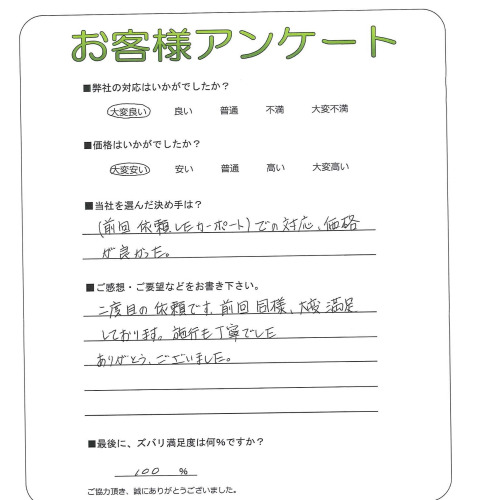 お客様アンケート
■弊社の対応はいかがでしたか？
大変良い 良い 普通 不満 大変不満
■価格はいかがでしたか？
大変安い 安い 普通 高い 大変高い
■当社を選んだ決め手は？
(前回 依頼したカーポート)での対応、価格
が良かった。
■ご感想・ご要望などをお書き下さい。
二度目の依頼です。前回同様、大変満足
しております。施行も丁寧でした
ありがとうございました。
■最後に、ズバリ満足度は何%ですか？
100 %
ご協力頂き、誠にありがとうございました。